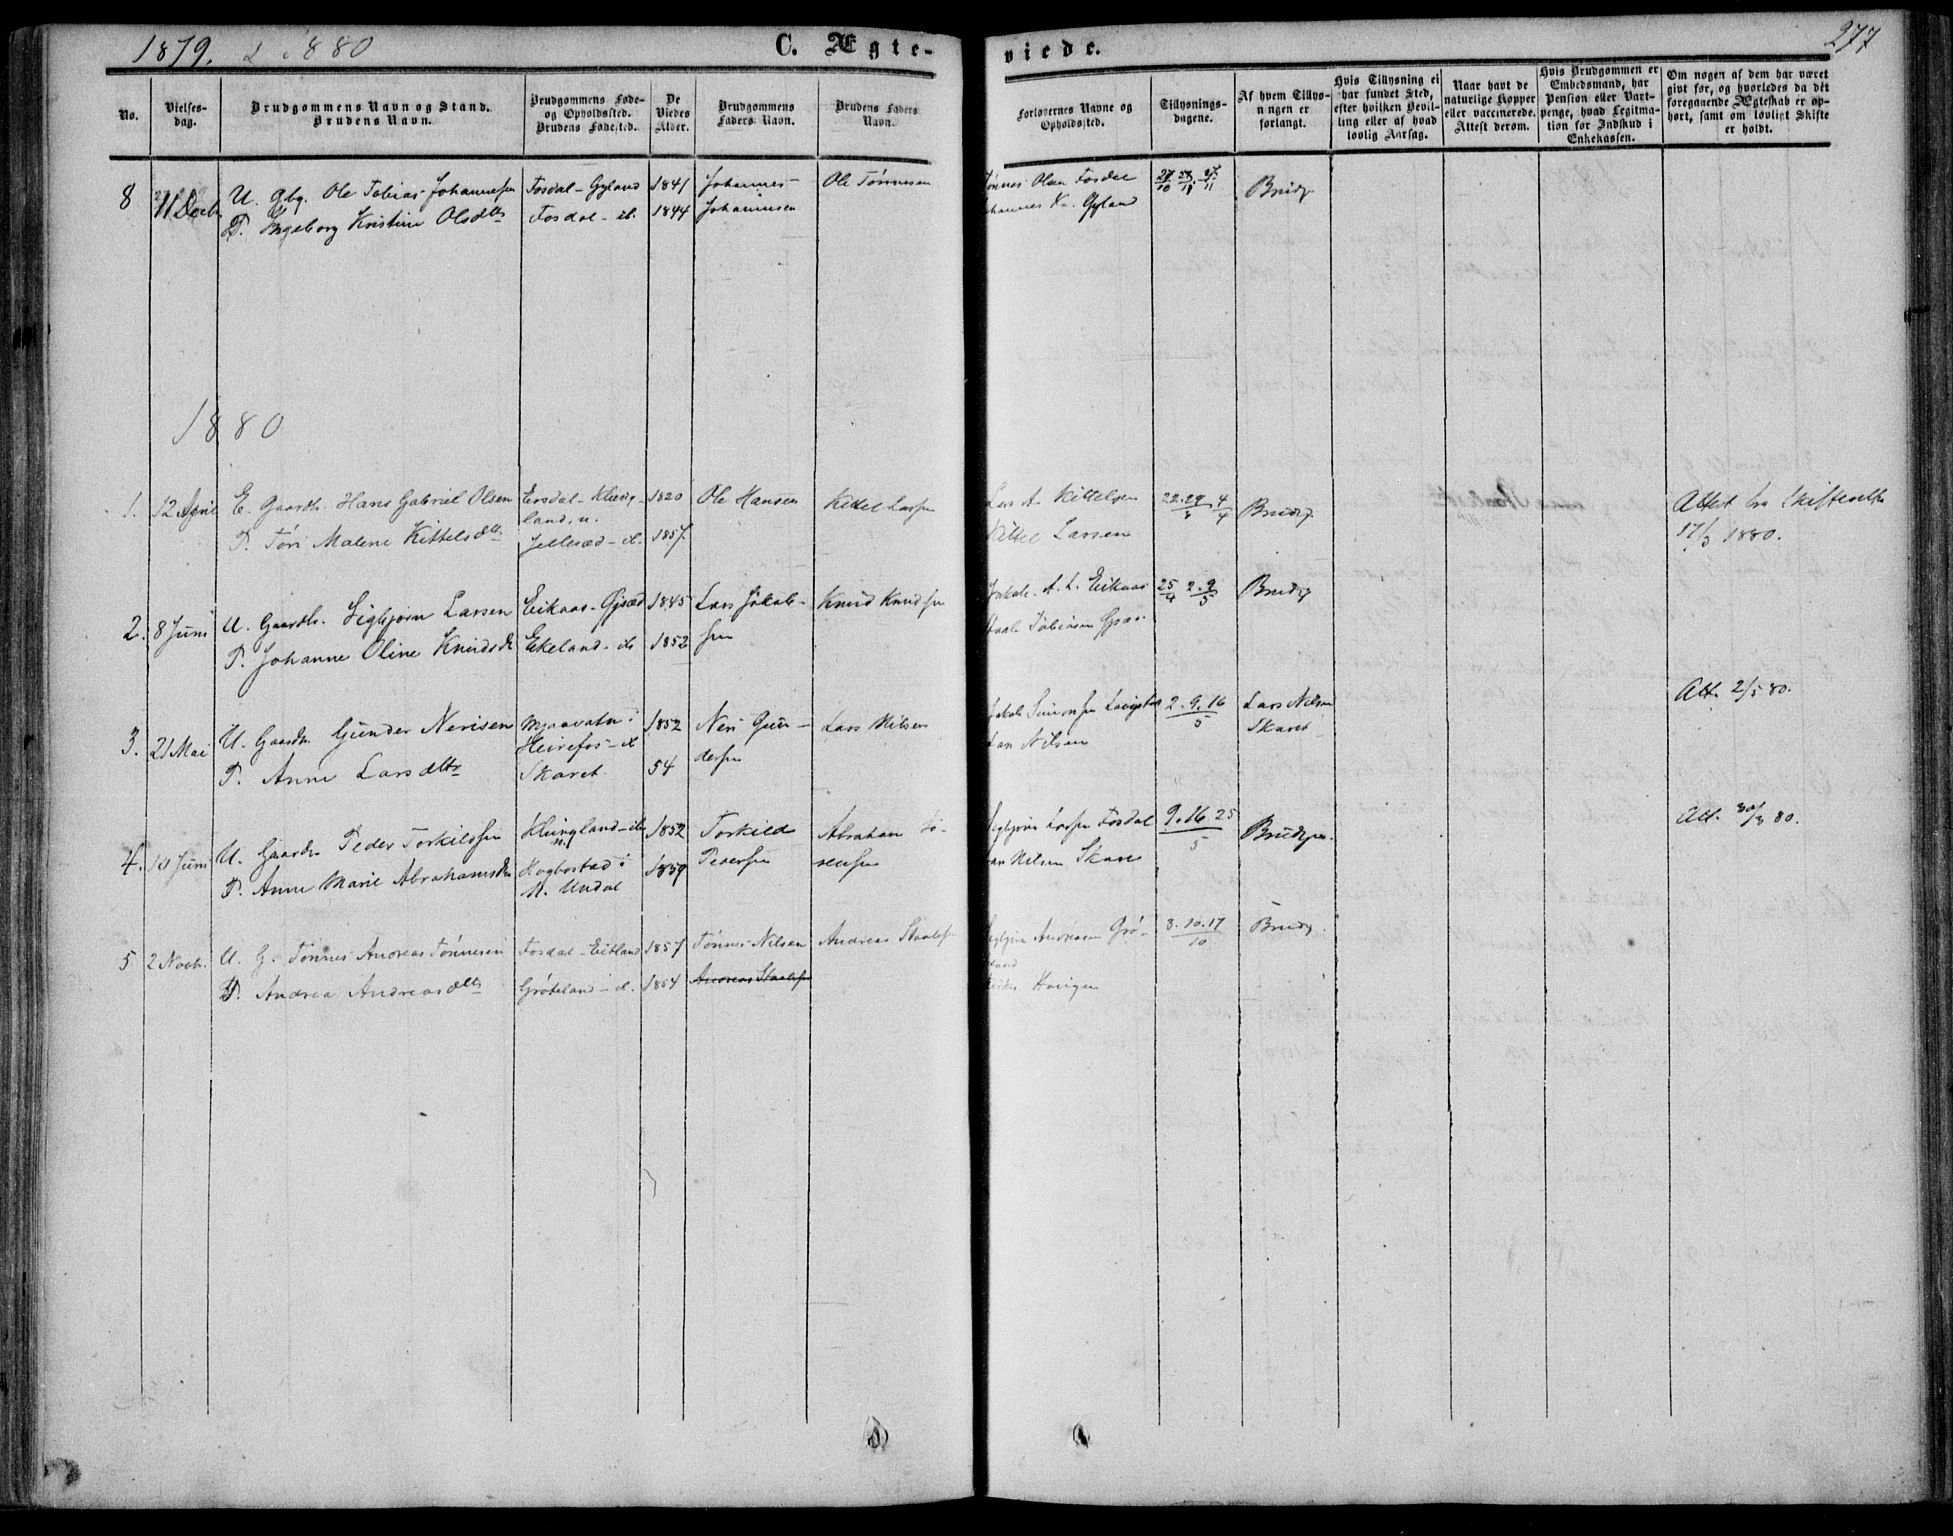 1879. & 1880
C. Ægte-
viede.
277
No.
Vielses-
dag.
Brudgommens Navn og Stand.
Brudens Navn.
Brudgommens Føde-
og Opholdssted.
Brudens Fødested.
De
Viedes
Alder.
Brudgommens
Faders Navn.
Brudens Faders
Navn.
Forlovernes Navne og
Opholdssted.
Tillysnings-
dagene.
Af hvem Tillys-
ningen er
forlangt.
Hvis Tillysning ei
har fundet Sted,
efter hvilken Bevil-
ling eller af hvad
lovlig Aarsag.
Naar havt de
naturlige Kopper
eller vaccinerede.
Attest derom.
Hvis Brudgommen er
Embedsmand, har
Pension eller Vart-
penge, hvad Legitima-
tion for Indskud i
Enkekassen.
Om nogen af dem har været
givt før, og hvorledes da det
foregaaende Ægteskab er op-
hørt, samt om lovligt Skifte
er holdt.
8 11 Decb. U. Gbg. Ole Tobias Johannesen Fosdal - Gyland 1841 Johannes Ole Tønnesen Tønnes Olsen Fosdal 27/10 Brudg.
P. Ingeborg Kristine Olsdtr Fosdal - ib. 1844 Johannesen Johannes Gyland
1880
1. 12 April E. Gaardbr. Hans Gabriel Olsen Ersdal - Klung- 1820 Ole Hansen Kittel Larsen Lars A. Kittelsen 22. 29 4/4 Brudg. Attest fra Skifteretten
land, n. 17/3 1880.
P. Tøri Malene Kittelsdtr Jellesæd - ib. 1857. Kittel Larsen
2. 8 Juni U. Gaardbr. Sigbjørn Larsen Eikaas - Gjsæd 1845 Lars Jakob- Knud Knudsen Jakob A. L. Eikaas 25/4 2. 9/5 Brudg.
P. Johanne Oline Knudsdtr Ekeland - ib 1852 sen Tobiasen
3. 21 Mai U. Gaardbr. Gunder Nerisen Mjaavatn i 1852 Neri Gun- Lars Nilsen Jakob Simonsen 2. 9. 16/5 Lars Nilsen Att. 2/5 80.
Heirefos - ib Skaret
P. Anne Larsdtr Skaret 54 dersen Lars Nilsen
4. 10 Juni U. Gaardbr. Peder Torkildsen Klungland - ib 1852 Torkild Abraham Sø- Sigbjørn Larsen Fosdal 9. 16 25/5 Brudgom. Att. 30/3 80.
P. Anne Marie Abrahamsdtr Hogbostad i 1859 Pedersen rensen Lars Nilsen Skare
N. Undal
5 2 Novb. U. G. Tønnes Andreas Tønnesen Fosdal - Eitland 1857 Tønnes Nilsen Andreas Staalesen Sigbjørn Andreasen Grø- 3. 10. 17/10 Brudg.
P. Andrea Andreasdtr Grøteland - ib. 1854 Andreas Staalesen